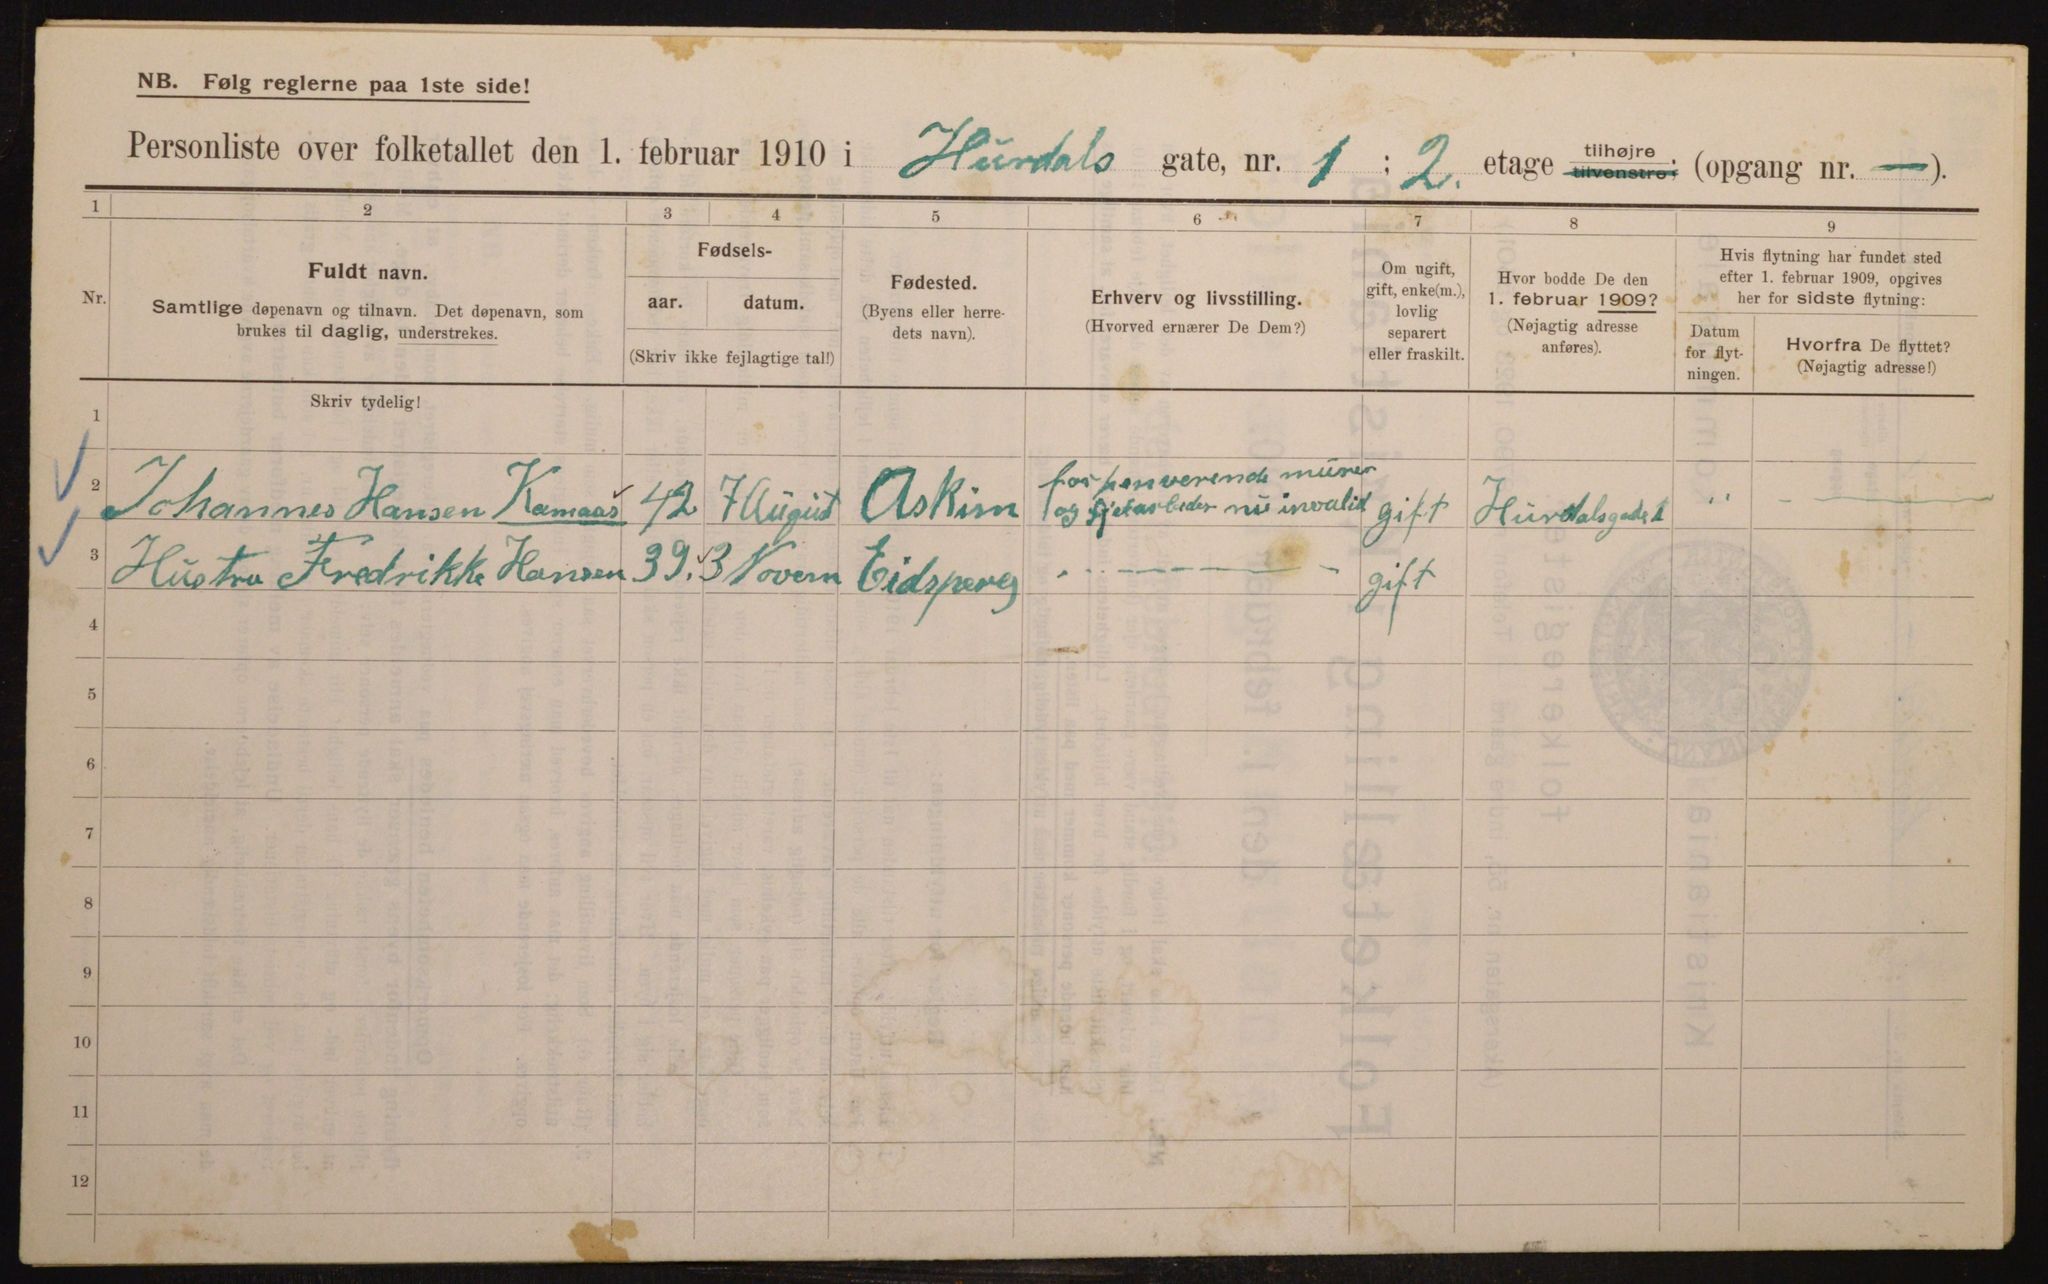 NB. Følg reglerne paa 1ste side!
Personliste over folketallet den 1. februar 1910 i Hurdals gate, nr. 1 ; 2. etage tilhøjre tilvenstre; (opgang nr. — ).
1 2 3 4 5 6 7 8 9
Nr.
Fuldt navn.
Samtlige døpenavn og tilnavn. Det døpenavn, som
brukes til daglig, understrekes.
Fødsels-
aar. datum.
(Skriv ikke fejlagtige tal!)
Fødested.
(Byens eller herre-
dets navn).
Erhverv og livsstilling.
(Hvorved ernærer De Dem?)
Om ugift,
gift, enke(m.),
lovlig
separert
eller fraskilt.
Hvor bodde De den
1. februar 1909?
(Nøjagtig adresse
anføres).
Hvis flytning har fundet sted
efter 1. februar 1909, opgives
her for sidste flytning:
Datum
for flyt-
ningen.
Hvorfra De flyttet?
(Nøjagtig adresse!)
Skriv tydelig!
1
2 Johannes Hansen Kamaas 42 7 August Askim forhenverende murer
og nu invalid gift Hurdalsgade 1 " -
3 Hustru Fredrikke Hansen 39. 3 Novem Eidsperg - gift
4
5
6
7
8
9
10
11
12